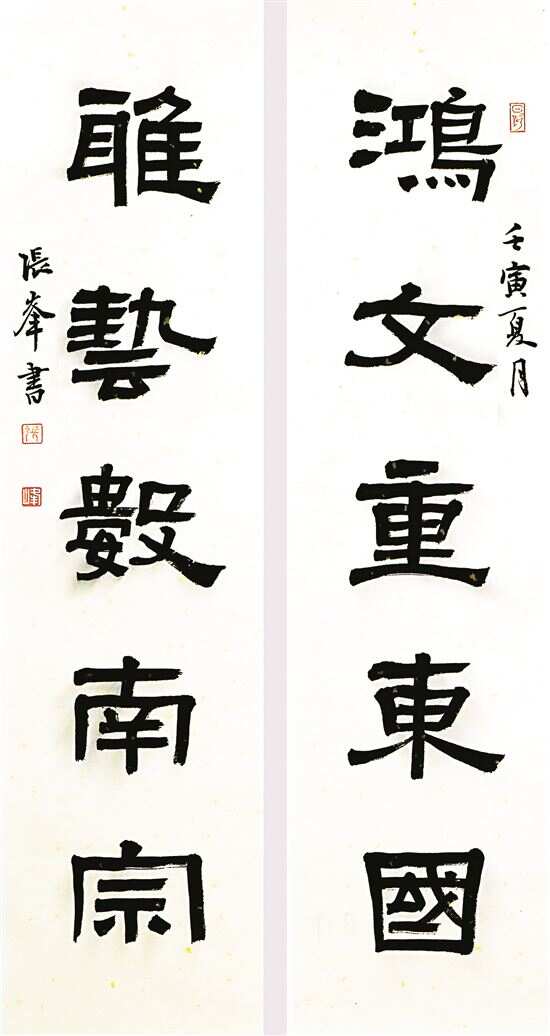 壬寅夏月
鴻文重東國
雅藝數南宗
張峯書